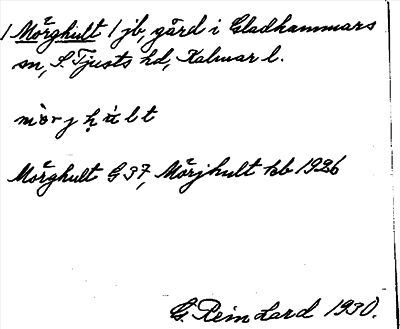 / Mörghult / jb, gård i Gladhammars
sn, S. Tjusts hd, Kalmar l.
Mörghult G 37, Mörjhult kb 1926
G. Reinhard 1930.